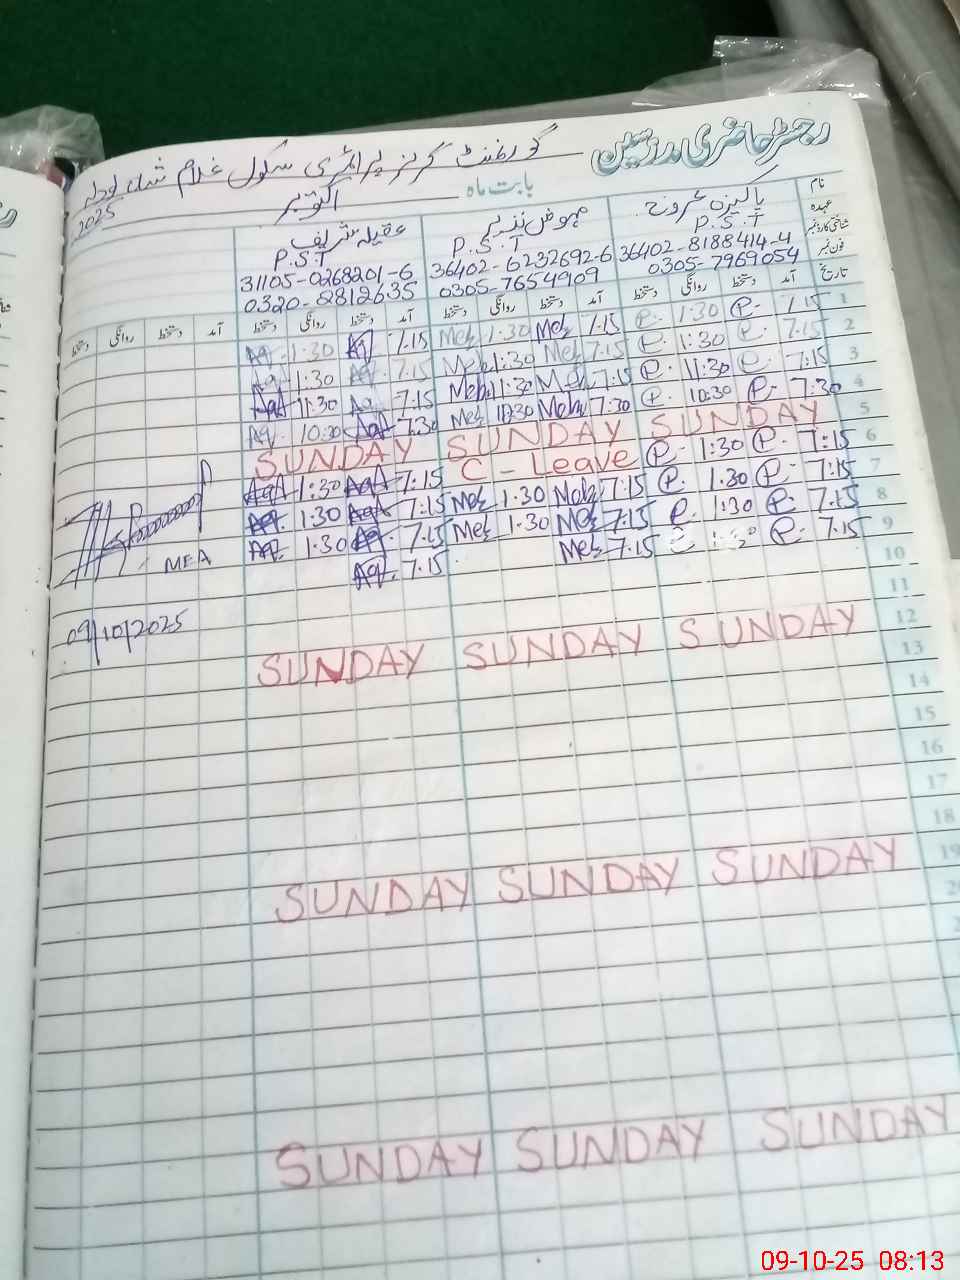 رجسٹر حاضری مدرسین
گورنمنٹ گرلز پرائمری سکول غلام شاہ
بابت ماہ اکتوبر 2025
نام پاکیزہ عروج مہوش نذیر عقیلہ شریف
عہدہ P.S.T P.S.T P.S.T
شناختی کارڈ نمبر 36402-8188414-4 36402-6232692-6 31105-0268201-6
فون نمبر 0305-7969054 0305-7654909 0320-8812635
تاریخ آمد دستخط روانگی دستخط آمد دستخط روانگی دستخط آمد دستخط روانگی دستخط آمد دستخط روانگی دستخط
1 7.15 P. 1:30 P. 7.15 Meh 1:30 Meh 7.15 Aq. 1:30 Aq.
2 7:15 P. 1:30 P. 7:15 Meh 1:30 Meh 7.15 Aq. 1:30 Aq.
3 7:15 P. 11:30 P. 7:15 Meh 11:30 Meh 7:15 Aq. 11:30 Aq.
4 7:30 P. 10:30 P. 7:30 Meh 10:30 Meh 7:30 Aq. 10:30 Aq.
5 SUNDAY SUNDAY SUNDAY
6 7:15 P. 1:30 P. C-Leave 7:15 Aq. 1:30 Aq.
7 7:15 P. 1.30 P. 7:15 Meh 1.30 Meh 7.15 Aq. 1:30 Aq.
8 7.15 P. 1:30 P. 7:15 Meh 1.30 Meh 7.15 Aq. 1.30 Aq.
9 7.15 P. P. 7.15 Meh 7.15 Aq.
MEA
10
09/10/2025
11
12 SUNDAY SUNDAY SUNDAY
13
14
15
16
17
18
19 SUNDAY SUNDAY SUNDAY
20
SUNDAY SUNDAY SUNDAY
09-10-25 08:13